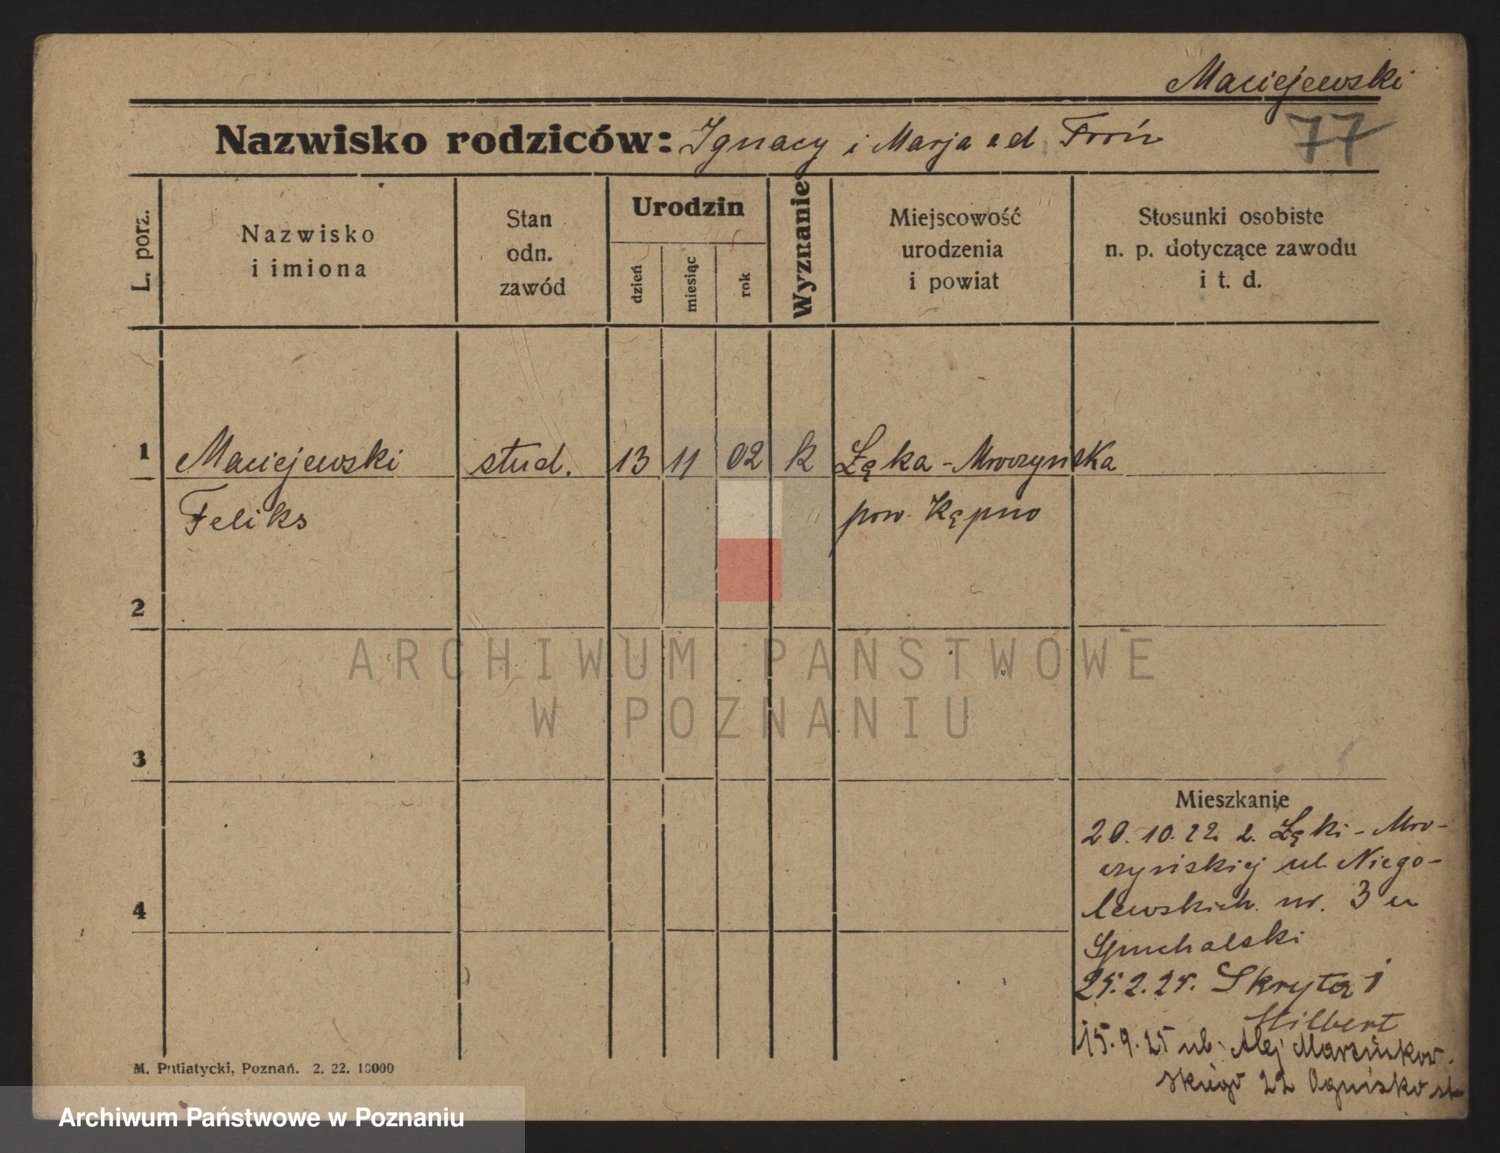 Maciejewski
77
Nazwisko rodziców: Ignacy i Marja z d Froń
L. porz.
Nazwisko
i imiona
Stan
odn.
zawód
Urodzin
dzień
miesiąc
rok
Wyznanie
Miejscowość
urodzenia
i powiat
Stosunki osobiste
n. p. dotyczące zawodu
i t. d.
1 Maciejewski stud. 13 11 02 k Łęka-Mroczyńska
Feliks pow. Kępno
2
ARCHIWUM PAŃSTWOWE
W POZNANIU
3
Mieszkanie
20.10.22 z. Łęki-Mro-
czyńskiej ul. Niego-
lewskich. nr. 3 u
25.2.25. Skryta 1
Hilbert
15.9.25 ul. Alej Marcinkow-
skiego 22 Ognisko st
4
M. Putiatycki, Poznań. 2. 22. 10000
Archiwum Państwowe w Poznaniu